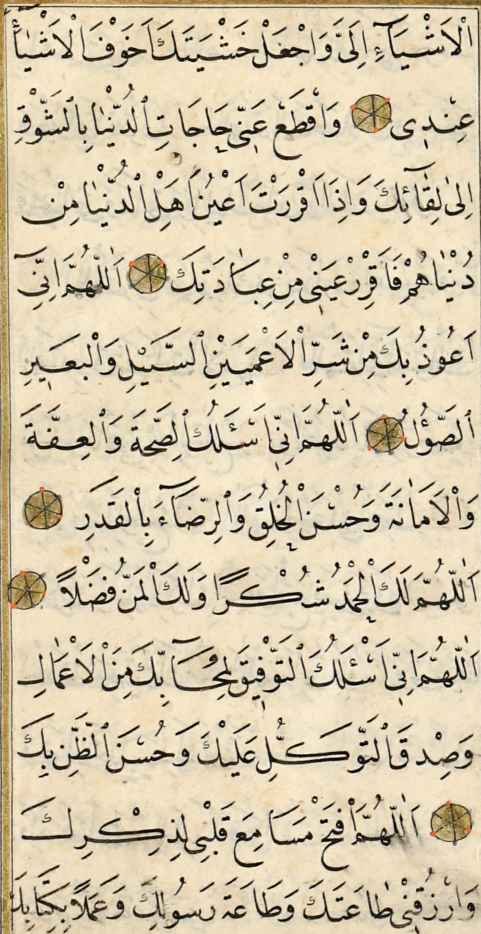 الْاَشْيَآءِ اِلَىَّ وَاجْعَلْ خَشْيَتَكَ اَخْوَفَ الْاَشْيَآءِ
عِنْدِى وَاقْطَعْ عَنِّى حَاجَاتِ الدُّنْيَا بِالشَّوْقِ
اِلىٰ لِقَائِكَ وَاِذَا اَقْرَرْتَ اَعْيُنَ اَهْلِ الدُّنْيَا مِنْ
دُنْيَاهُمْ فَاَقْرِرْ عَيْنِى مِنْ عِبَادَتِكَ اَللّٰهُمَّ اِنِّىٓ
اَعُوذُ بِكَ مِنْ شَرِّ الْاَعْمَيَيْنِ السَّيْلِ وَالْبَعِيرِ
الصَّؤُلِ اَللّٰهُمَّ اِنِّى اَسْئَلُكَ الصِّحَةَ وَالْعِفَّةَ
وَالْاَمَانَةَ وَحُسْنَ الْخُلُقِ وَالرِّضَآءَ بِالْقَدَرِ
اَللّٰهُمَّ لَكَ الْحَمْدُ شُكْرًا وَلَكَ الْمَنُّ فَضْلاً
اَللّٰهُمَّ اِنِّى اَسْئَلُكَ التَّوْفِيقَ لِمَحَآبِّكَ مِنَ الْاَعْمَالِ
وَصِدْقَ التَّوَكُّلِ عَلَيْكَ وَحُسْنَ الظَّنِّ بِكَ
اَللّٰهُمَّ افْتَحْ مَسَامِعَ قَلْبِى لِذِكْرِكَ
وَارْزُقْنِى طَاعَتَكَ وَطَاعَةَ رَسُولِكَ وَعَمَلاً بِكِتَابِكَ